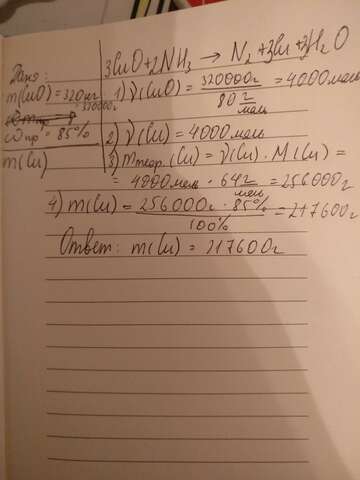 Дано:
m(CuO) = 320 кг
= 320000г
ωпр = 85%
m(Cu)
3CuO + 2NH₃ → N₂ + 3Cu + 3H₂O
1) ν(CuO) = 320000г / 80 г/моль = 4000 моль
2) ν(Cu) = 4000 моль
3) mтеор.(Cu) = ν(Cu) · M(Cu) =
= 4000 моль · 64 г/моль = 256000г
4) m(Cu) = 256000г · 85% / 100% = 217600г
Ответ: m(Cu) = 217600г